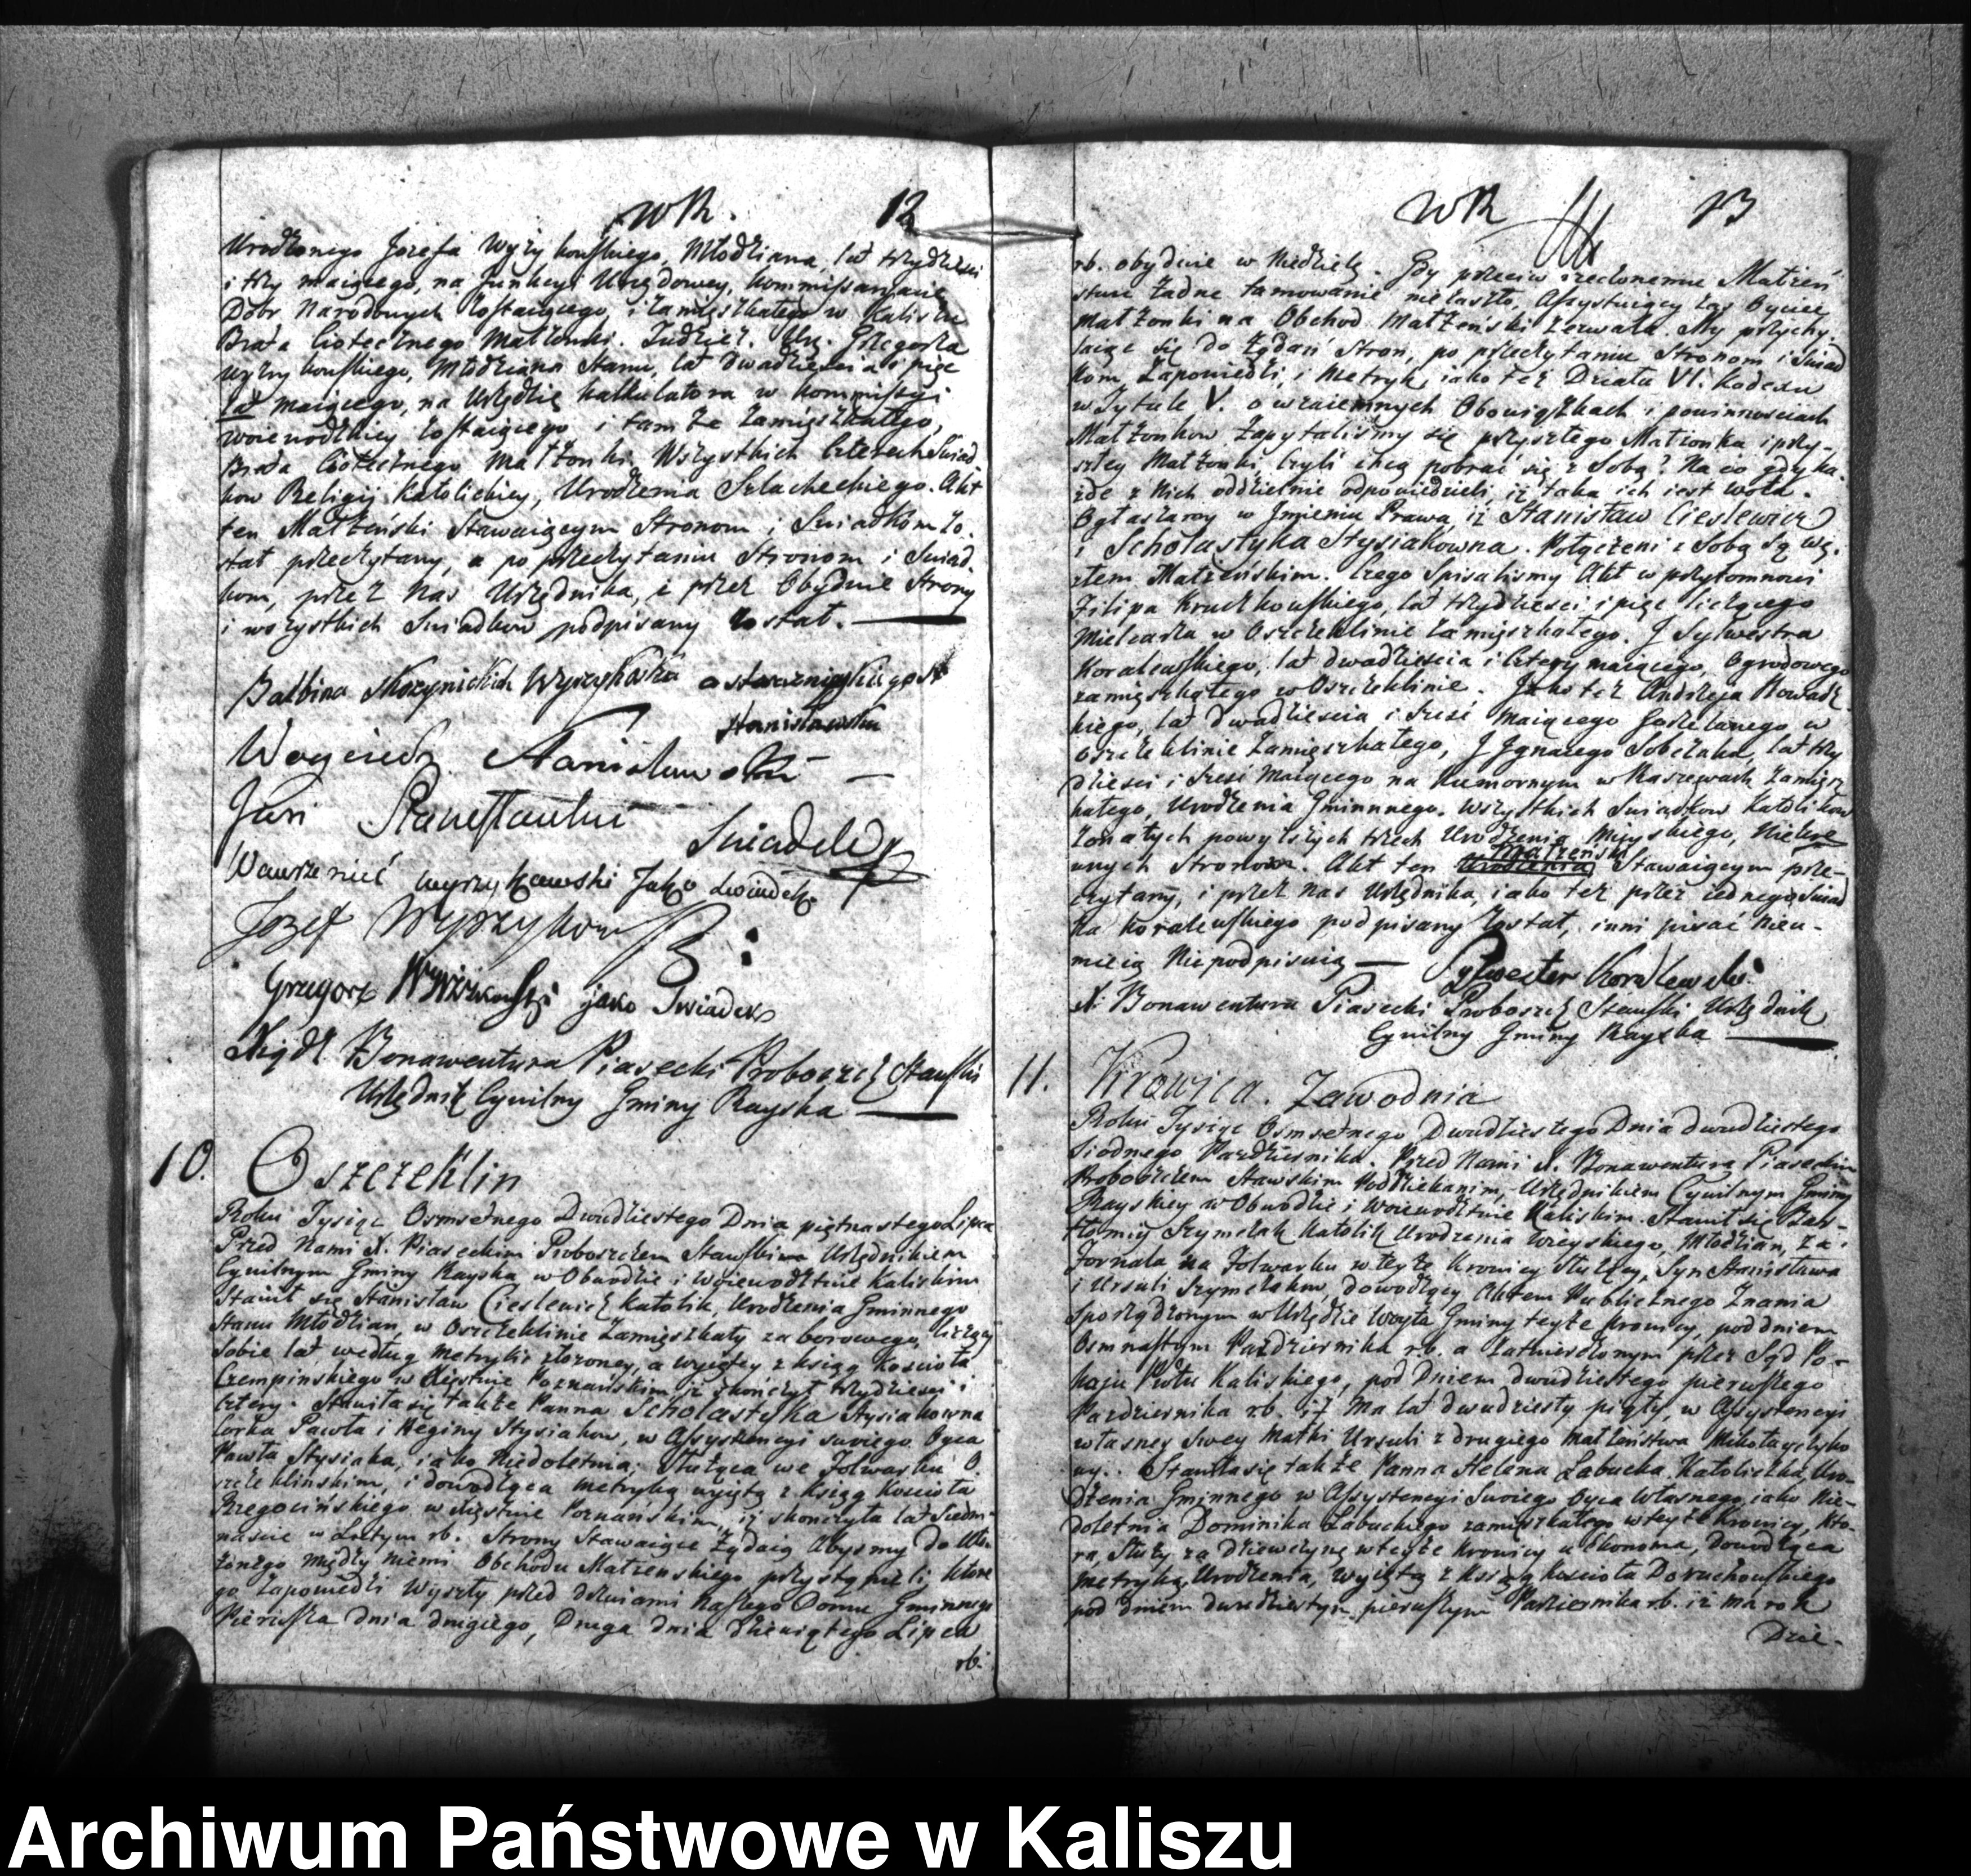 12
Urodzonego Jozefa Wyży kouskiego, Młodziana, lat trzydzieści
i trzy maiącego, na Funkcyi Urzędowey, kommissaryacie
Dobr Narodowych zostaiącego, i zamięszkałego w Kaliszu
Brata Ciotecznego Małżonki. Tudzież. Ur. Grzegorza
wyżny kouskiego, Młodziana Stanu, lat dwadzieścia i pięć
lat maiącego, na Urzędzie kalkulatora w kommissyi
woiewodzkiey zostaiącego i tamże zamięszkałego,
Brata Ciotecznego Małżonki. Wszystkich czterech Świad
kow Religij katolickiey, Urodzenia Szlacheckiego. Akt
ten Małżeński Stawaiącym Stronom i Swiadkom zo.
stał przeczytany, a po przeczytaniu Stronom i Swiad.
kom, przez Nas Urzędnika, i przez Obydwie Strony
i wszystkich Swiadkow podpisany został.
Balbina Skozynickich Wyszykoska
Stanisławska
Woyciech Stanisławski
Jan
Swiadek
Wawrzeniec wyrzykowski Jako swiadek
Jozef Wyrzykowski
Grzegorz jako Swiadek
Xiądz Bonawentura Piasecki Proboszcz Stawski
Urzędnik Cywilny Gminy Rayska
10. Oszczeklin
Roku Tysiąc Osmsetnego Dwudziestego Dnia piętnastego Lipca
Przed Nami X. Piaseckim Proboszczem Stawskim Urzędnikiem
Cywilnym Gminy Rayska w Obwodzie i Woiewodztwie Kaliskim
Stawił się Stanisław Cieslewicz Katolik, Urodzenia Gminnego
Stanu Młodzian, w Oszczeklinie Zamięszkały za borowego, liczący
Sobie lat według metryki złożoney, a wyiętey z ksiąg Kościoła
Czempińskiego w Xięstwie Poznańskim iż skończył trzydzieści i
cztery. Stawiła się także Panna Scholastyka Stysiakowna
Corka Pawła i Reginy Stysiakow, w Assystencyi swoiego Oyca
Pawła Stysiaka, iako Niedoletnia, Służąca we Folwarku O
szczeklińskim, i dowodząca metryką wyiętą z ksiąg kościoła
Bregocińskiego w Xięstwie Poznańskim, iż skończyła lat Siedm
nascie w Lutym rb. Strony Stawaiące żądaią Abysmy do Uło.
żonego między niemi Obchodu Małżenskiego przystąpili, ktore
go Zapowiedzi wyszły przed drzwiami naszego Domu Gminnego
Pierwsza dnia drugiego, Druga dnia dziewiątego Lipca
rb.
13
rb. obydwie w Niedzielę. Gdy przeciw rzeczonemu Małżeń
stwu żadne tamowanie niezaszło, Assystuiący zaś Oyciec
Małżonki na Obchod Małżeński zezwala. My przychy.
laiąc się do żądań Stron, po przeczytaniu Stronom i Świad
kom, Zapowiedzi, i Metryk, iako też Działu VI. kodexu
w Tytule V. o wzaiemnych Obowiązkach i powinnosciach
Małżonkow Zapytaliśmy się przyszłego Małżonka i przy-
szłey Małżonki, Czyli chcą pobrać się z Sobą? Na co gdy ka.
żde z Nich oddzielnie odpowiedzieli, iż taka ich iest wola.
Ogłaszamy w Jmieniu Prawa, iż Stanisław Cieslewicz
i Scholastyka Stysiakowna. Połączeni z Sobą są wę.
złem Małżeńskim. Czego Spisalismy Akt w przytomnosci
Filipa Kruczkouskiego, lat trzydzieści i pięć liczącego
Mielcarza w Oszczeklinie zamięszkałego. J Sylwestra
Koraleuskiego, lat dwadzieścia i cztery maiącego, Ogrodowego
zamięszkałego w Oszczeklinie. Jako też Andrzeja Nowadz
kiego, lat dwadzieścia i sześć maiącego Gorzelanego w
oszczeklinie Zamieszkałego, J Jgnacego Sobczaka, lat trzy
dzieści i sześć Maiącego na Kumornym w Raszewach Zamięsz
kałego, Urodzenia Gminnnego. Wszystkich Swiadkow katolikow
żonatych powyższych trzech Urodzenia Mieyskiego, Niekre
wnych Stronom. Akt ten Małżeński Stawaiącym prze-
czytany, i przez nas Urzędnika, iako też przez iednego Swiad
ka Koraleuskiego podpisany został, inni pisać nieu-
mieią Nie podpisuią. Sylwester Koralewski
X. Bonawentura Piasecki Proboszcz Stawski Urzędnik
Cywilny Gminy Rayska
11. Krowica. Zawodnia
Roku Tysiąc Osmsetnego Dwudziestego Dnia dwudziestego
siodmego Października. Przed Nami X. Bonawenturą Piaseckim
Proboszczem Stawskim Poddziekanim, Urzędnikiem Cywilnym Gminy
Rayskiey w Obwodzie i Woiewodztwie Kaliskim. Stawił się Bar-
tłomiy Szymczak Katolik Urodzenia wieyskiego, Młodzian, za
Fornala na Folwarku w teyże Krowicy Służący, Syn Stanisława
i Urszuli Szymczakow, dowodzący Aktem Publicznego Znania
Sporządzonym w Urzędzie Woyta Gminy teyże krowicy, pod dniem
Osmnastym Października rb. a zatwierdzonym przez Sąd Po-
koju Powtu Kaliskiego, pod Dniem dwudziestego pierwszego
Pazdziernika rb. iż Ma lat dwudziesty piąty, w Assystencyi
własney Swey Matki Urszuli z drugiego Małżeństwa
Stawiła się także Panna Helena Łabucka, Katoliczka, Uro-
dzenia Gminnego w Assystencyi Swoiego Oyca własnego, iako Nie-
doletnia Dominika Łabuckiego zamięszkałego w teyże Krowicy, kto-
ra, Służy za dziewczynę w teyże krowicy u Ekonoma, Dowodząca
Metryką Urodzenia, wyiętą z ksiąg kościoła Doruchouskiego
pod dniem dwudziestym pierwszym Pazdziernika rb. iż ma rok
Dzie-
Archiwum Państwowe w Kaliszu